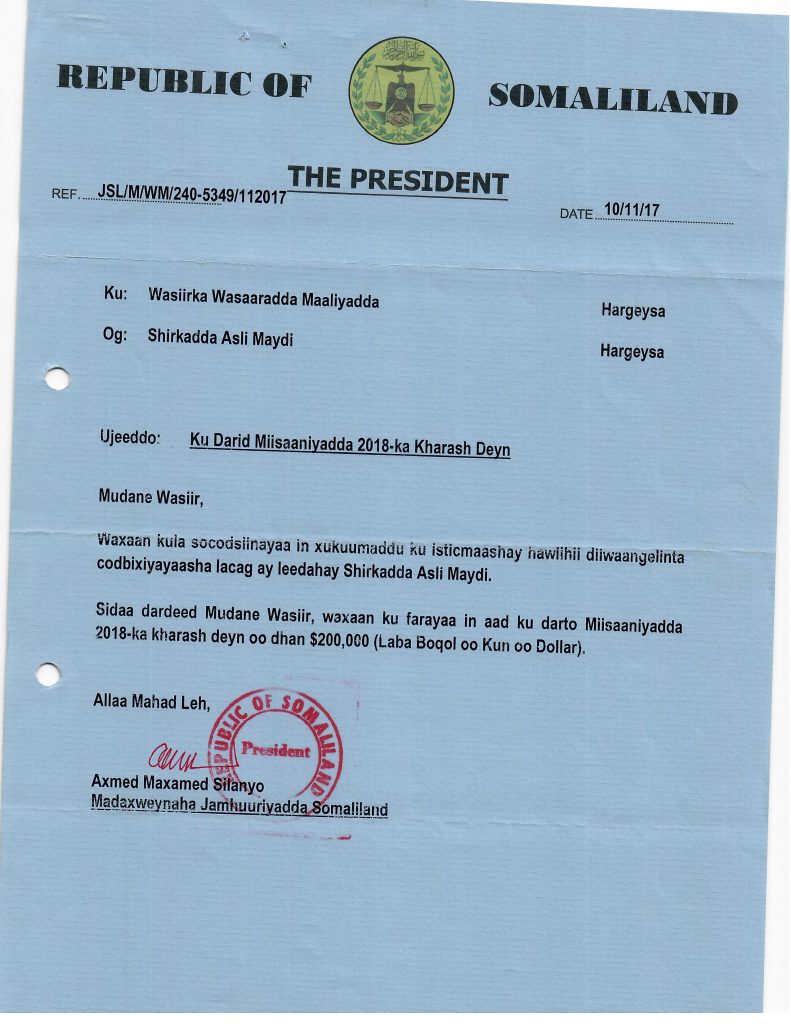 REPUBLIC OF SOMALILAND
THE PRESIDENT
REF. JSL/M/WM/240-5349/112017
DATE 10/11/17
Ku: Wasiirka Wasaaradda Maaliyadda Hargeysa
Og: Shirkadda Asli Maydi Hargeysa
Ujeeddo: Ku Darid Miisaaniyadda 2018-ka Kharash Deyn
Mudane Wasiir,
Waxaan kula socodsiinayaa in xukuumaddu ku isticmaashay hawlihii diiwaangelinta
codbixiyayaasha lacag ay leedahay Shirkadda Asli Maydi.
Sidaa dardeed Mudane Wasiir, waxaan ku farayaa in aad ku darto Miisaaniyadda
2018-ka kharash deyn oo dhan $200,000 (Laba Boqol oo Kun oo Dollar).
Allaa Mahad Leh,
REPUBLIC OF SOMALILAND
President
Axmed Maxamed Silanyo
Madaxweynaha Jamhuuriyadda Somaliland